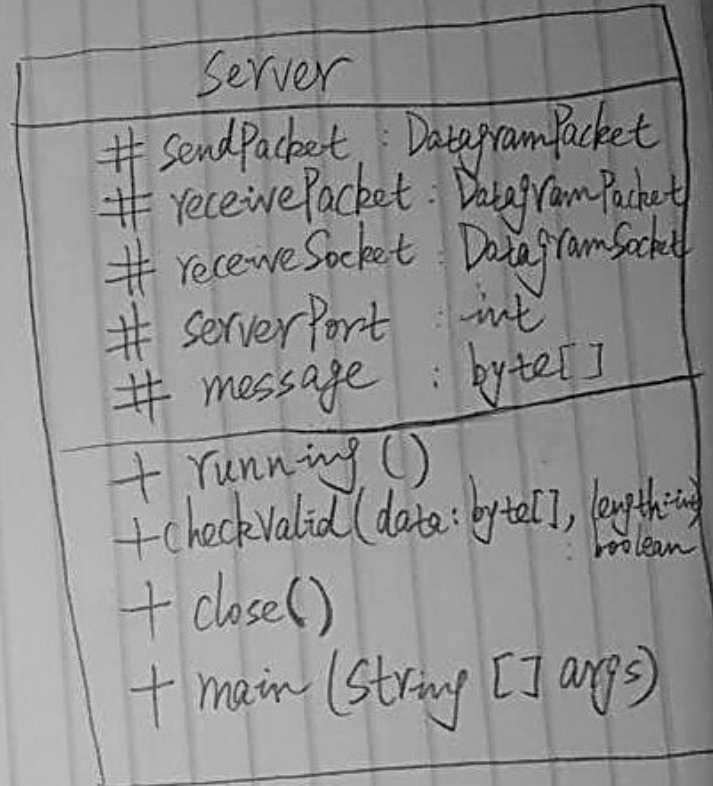 Server
# sendPacket : DatagramPacket
# receivePacket : DatagramPacket
# receiveSocket : DatagramSocket
# serverPort : int
# message : byte[]
+ running ()
+ checkValid (data: byte[], length: int)
: boolean
+ close()
+ main (String [] args)